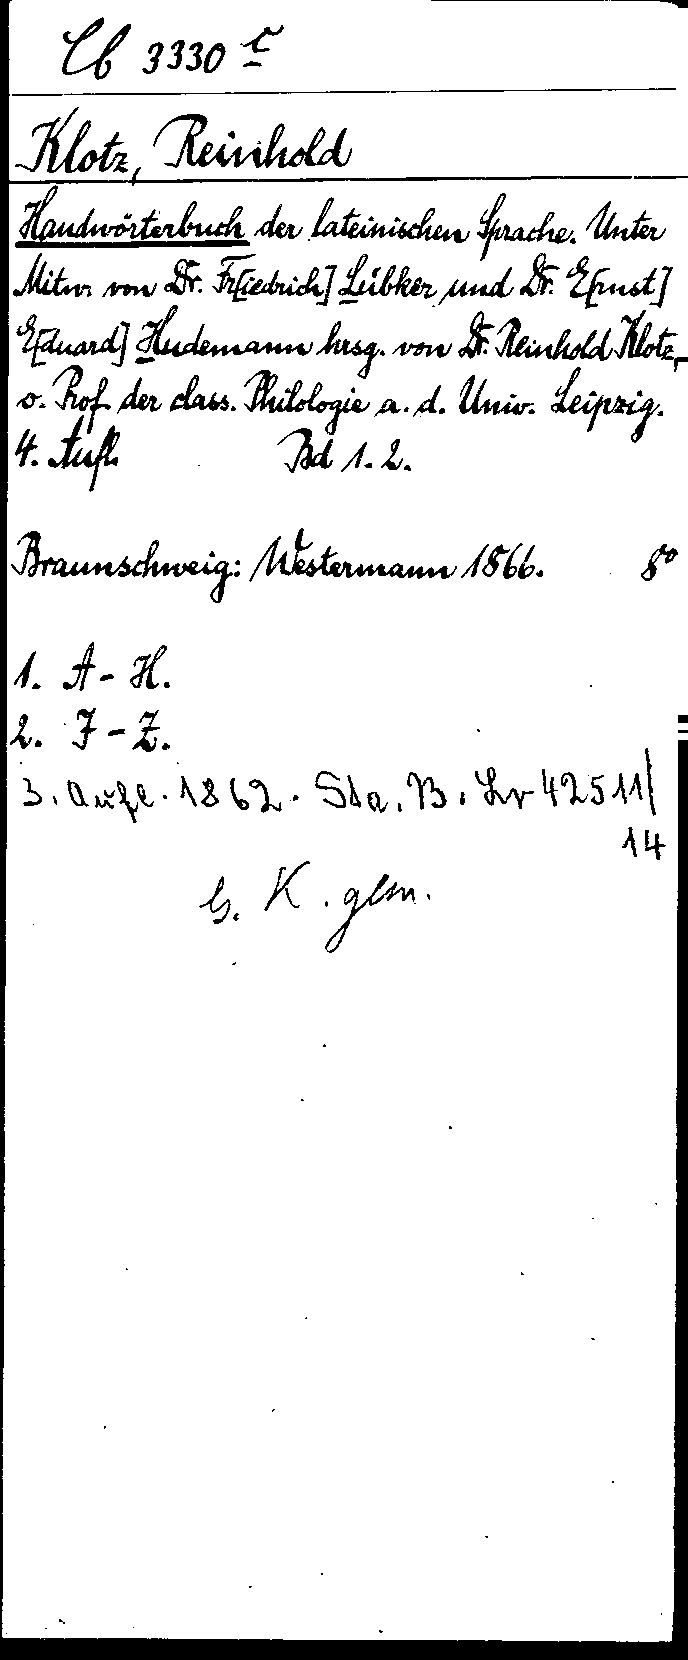 Cb 3330 c
Klotz, Reinhold
Handwörterbuch der lateinischen Sprache. Unter
Mitw. von Dr. Fr[iedrich] Lübker und Dr. E[rnst]
E[duard] Hudemann hrsg. von Dr. Reinhold Klotz,
o. Prof. der class. Philologie a. d. Univ. Leipzig.
4. Aufl. Bd 1. 2.
Braunschweig: Westermann 1866. 8°
1. A - H.
2. I - Z.
3. Aufl. 1862. Sta. B. Lr 42511/
14
K. glm.